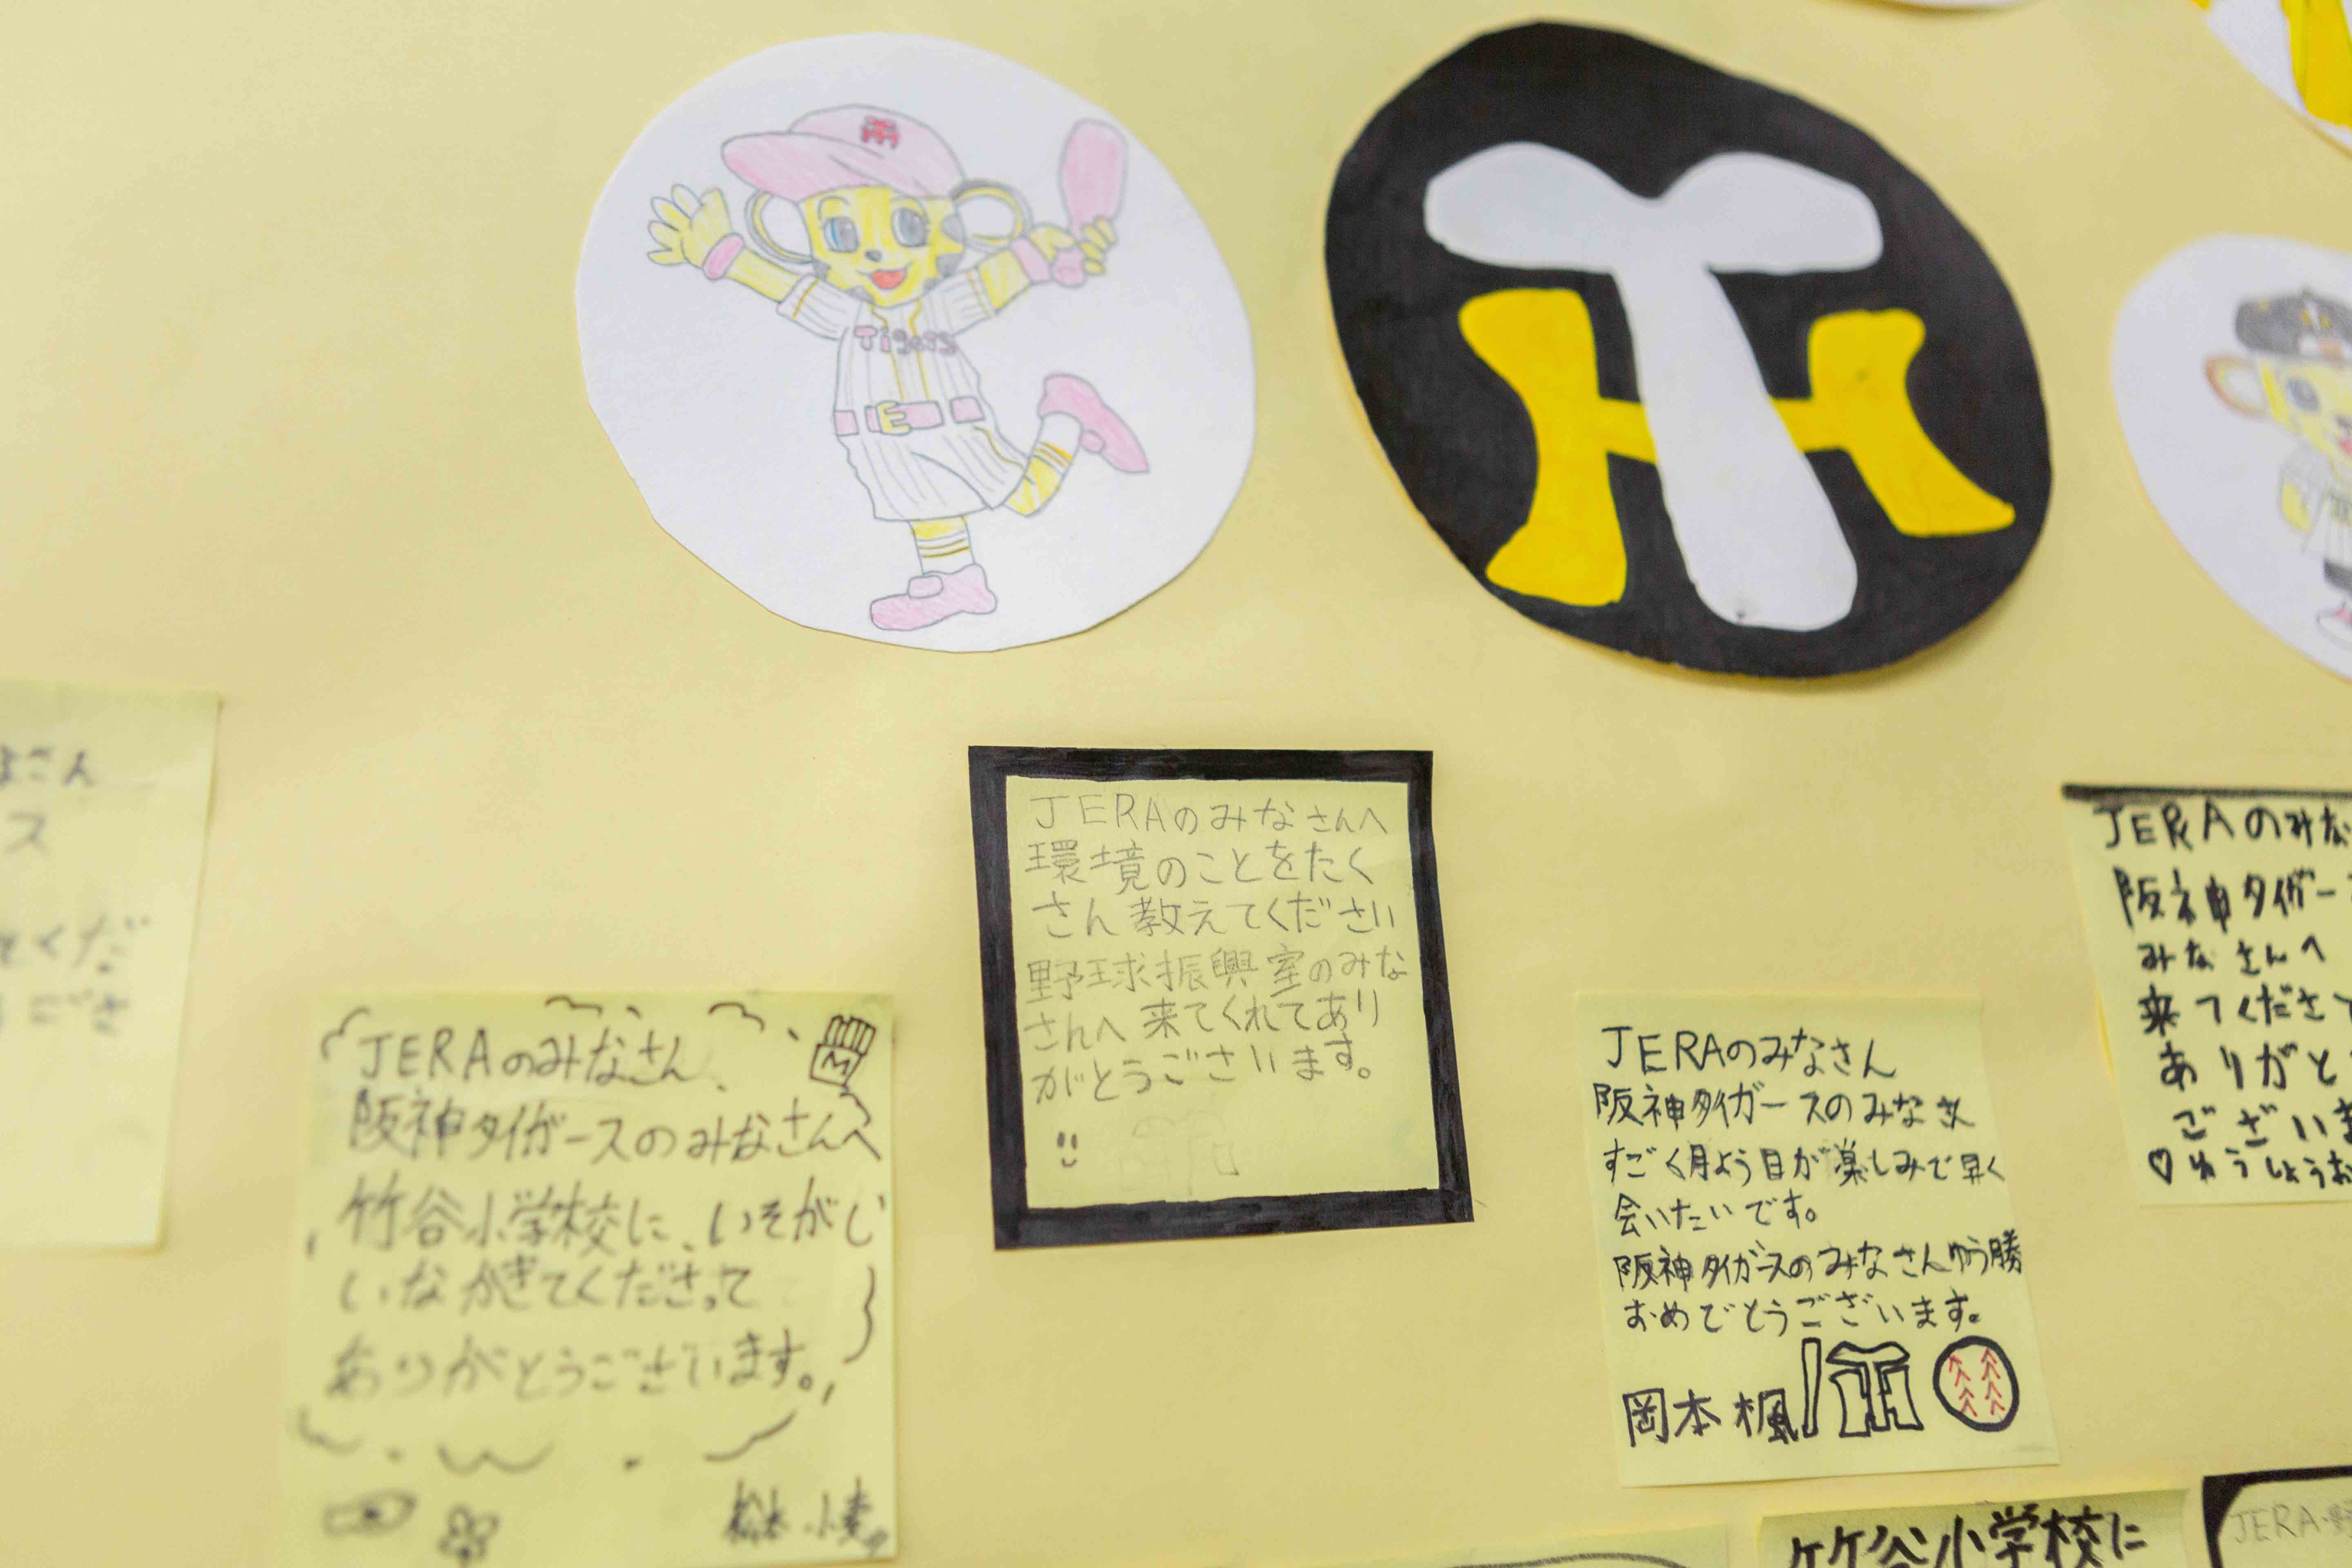 Tigers
JERAのみなさんへ
環境のことをたく
さん教えてください
野球振興室のみな
さんへ 来てくれてあり
がとうございます。
JERAのみなさん、
阪神タイガースのみなさんへ
竹谷小学校に、いそがし
いなかきてくださって
ありがとうございます。
JERAのみなさん
阪神タイガースのみなさん
すごく月よう日が楽しみで早く
会いたいです。
阪神タイガースのみなさんゆう勝
おめでとうございます。
岡本 楓
JERAのみな
阪神タイガー
みなさんへ
来てくださ
ありがと
ございま
♡ゆうしょうお
くだ
ござ
竹谷小学校に
JERA